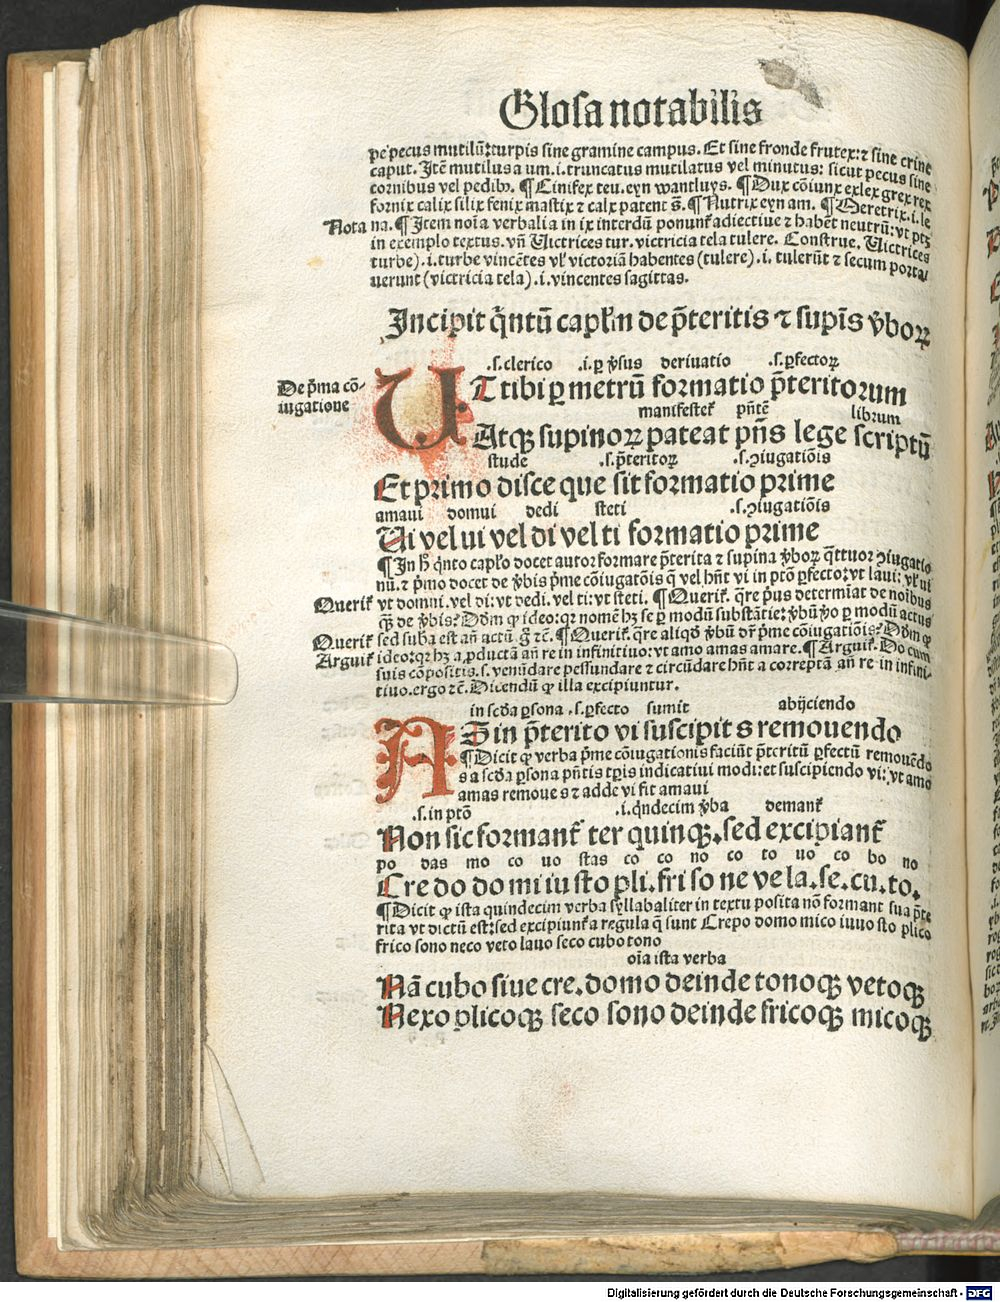 Glosa notabilis
pe pecus mutilũ: turpis sine gramine campus. Et sine fronde frutex: ⁊ sine crine
caput. Itẽ mutilus a um .i. truncatus mutilatus vel minutus: sicut pecus sine
cornibus vel pedibꝰ. ¶ Cinifex teu. eyn wantluys. ¶ Dux cõiunx exlex grex rex
fornix calix silix fenix mastix ⁊ calx patent
¶ Nutrix eyn am. ¶ Meretrix .i. le
Nota
na. ¶ Item noĩa verbalia in ix interdũ ponunť adiectiue ⁊ habẽt neutrũ: vt ptꝫ
in exemplo textus. vñ Victrices tur. victricia tela tulere. Construe. Victrices
turbe) .i. turbe vincẽtes vľ victoriã habentes (tulere) .i. tulerũt ⁊ secum porta/
uerunt (victricia tela) .i. vincentes sagittas.
Incipit q̃ntũ capľm de p̃teritis ⁊ supĩs v̉boꝝ
De p̃ma cõ-
iugatione
.s. clerico .i. ꝑ v̉sus deriuatio .s. ꝑfectoꝝ
UT tibi ꝑ metrũ formatio p̃teritorum
manifesteť pñtẽ librum
Atqꝫ supinoꝝ pateat pñs lege scriptũ
stude .s. p̃teritoꝝ .s. ꝯiugatiõis
Et primo disce que sit formatio prime
amaui domui dedi steti .s. ꝯiugatiõis
Ui vel ui vel di vel ti formatio prime
¶ In h̊ q̃nto capľo docet autor formare p̃terita ⁊ supina v̉boꝝ q̃ttuor ꝯiugatio
nũ. ⁊ p̃mo docet de v̉bis p̃me cõiugatõis q̃ vel hñt vi in ptõ ꝑfecto: vt laui: vľ ui
Queriť
vt domui. vel di: vt dedi. vel ti: vt steti. ¶ Queriť. q̃re p̃us determiat de noĩbus
qꝫ de v̉bis? Dõm ꝙ ideo: qꝛ nomẽ hꝫ se ꝑ modũ substãtie: v̉bũ v̊o ꝑ modũ actus
Queriť
sed suba est añ actũ. g̊ ⁊c̃. ¶ Queriť. q̃re aliqđ v̉bũ dr̃ p̃me cõiugatiõis? Dõm ꝙ
Arguiť
ideo: qꝛ hꝫ a ꝓductã añ re in infinitiuo: vt amo amas amare. ¶ Arguiť. Do cum
suis cõpositis .s. venũdare pessundare ⁊ circũdare hñt a correptã añ re in infini-
tiuo. ergo ⁊c̃. Dicendũ ꝙ illa excipiuntur.
in scđa ꝑsona .s. ꝑfecto sumit abijciendo
AS in p̃terito vi suscipit s remouendo
¶ Dicit ꝙ verba p̃me cõiugationis faciũt p̃teritũ ꝑfectũ remouẽdo
s a scđa ꝑsona pñtis tꝑis indicatiui modi: et suscipiendo vi: vt amo
amas remoue s ⁊ adde vi fit amaui
.s. in ptõ .i. q̃ndecim v̉ba demanť
Non sic formanť ter quinqꝫ. sed excipianť
po das mo co uo stas co co no co to uo co bo no
Cre do do mi iu sto pli. fri so ne ve la. se. cu. to.
¶ Dicit ꝙ ista quindecim verba syllabaliter in textu posita nõ formant sua p̃te
rita vt dictũ est: sed excipiunť a regula q̃ sunt Crepo domo mico iuuo sto plico
frico sono neco veto lauo seco cubo tono
oĩa ista verba
Nã cubo siue cre. domo deinde tonoqꝫ vetoqꝫ
Nexo plicoqꝫ seco sono deinde fricoqꝫ micoqꝫ
Digitalisierung gefördert durch die Deutsche Forschungsgemeinschaft - DFG